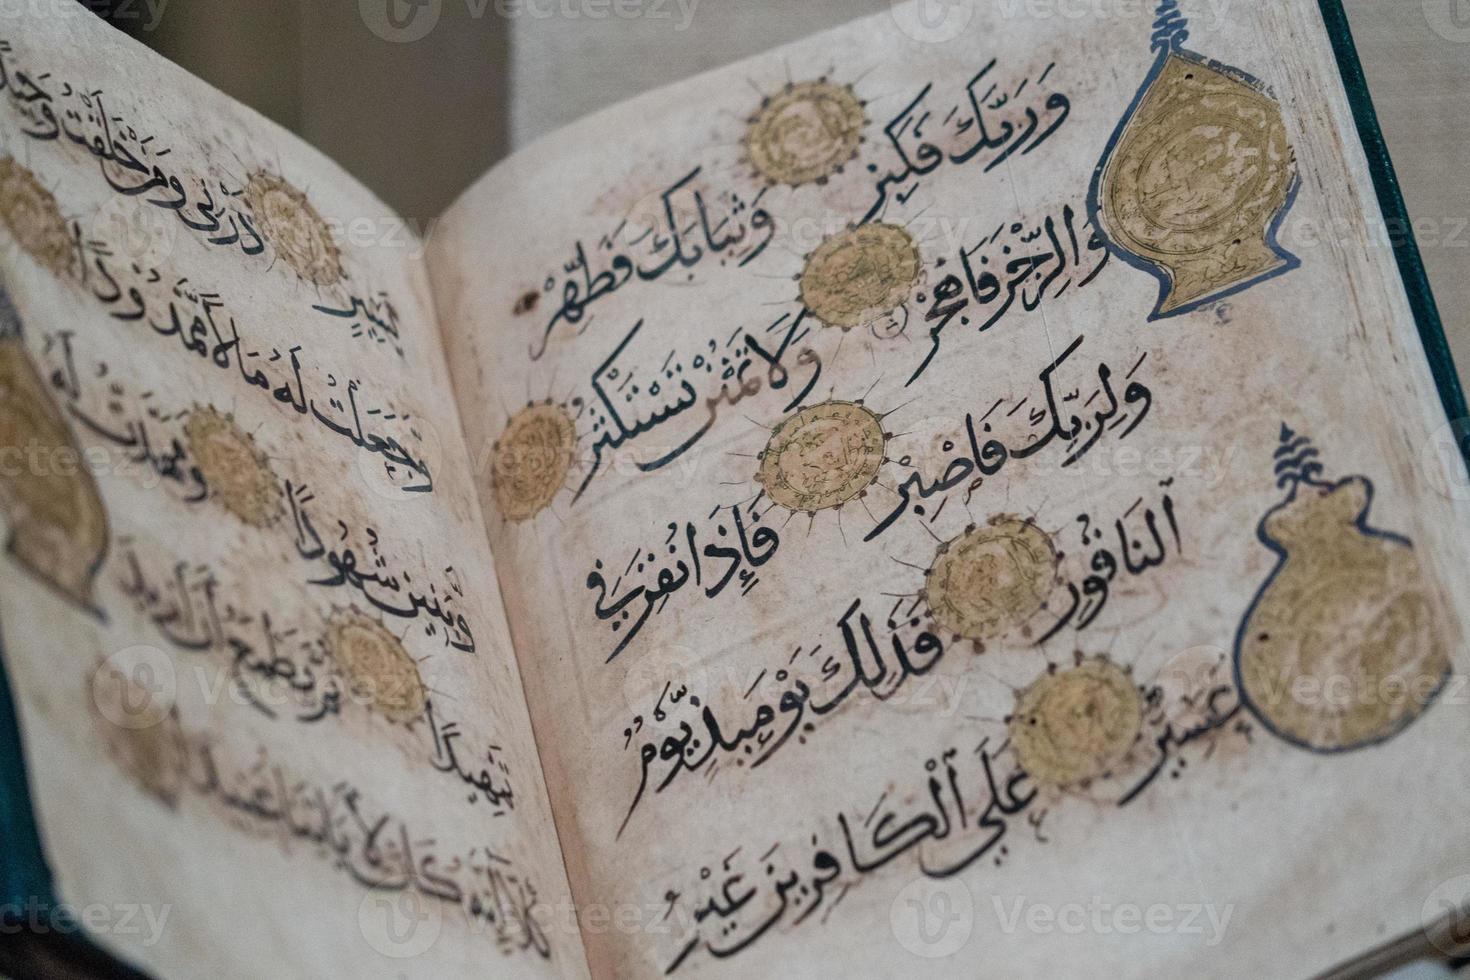 وَرَبَّكَ فَكَبِّرْ وَثِيَابَكَ فَطَهِّرْ
وَالرِّجْزَ فَاهْجُرْ وَلَا تَمْنُنْ تَسْتَكْثِرُ
وَلِرَبِّكَ فَاصْبِرْ فَإِذَا نُقِرَ فِي
ٱلنَّاقُورِ فَذَلِكَ يَوْمَئِذٍ يَوْمٌ
عَسِيرٌ عَلَى ٱلْكَافِرِينَ غَيْرُ
يَسِيرٍ ذَرْنِي وَمَنْ خَلَقْتُ وَحِيدًا
وَجَعَلْتُ لَهُ مَالًا مَمْدُودًا
وَبَنِينَ شُهُودًا وَمَهَّدْتُ لَهُ
تَمْهِيدًا ثُمَّ يَطْمَعُ أَنْ أَزِيدَ
كَلَّا إِنَّهُ كَانَ لِآيَاتِنَا عَنِيدًا
Vecteezy